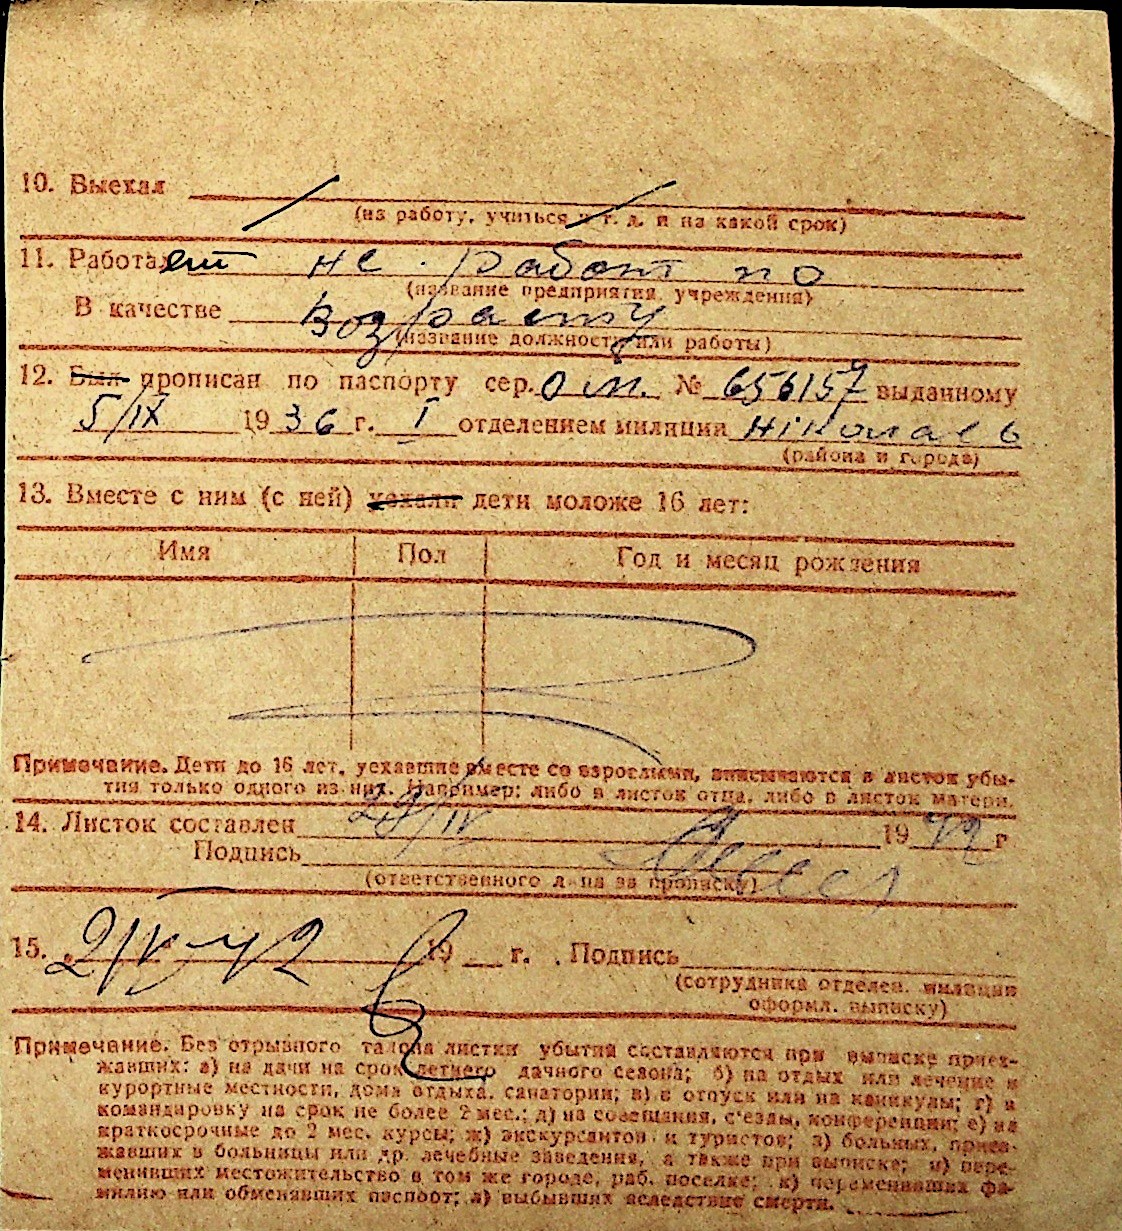 10. Выехал
(на работу, учиться и т. д. и на какой срок)
11. Работает не работ по
(название предприятия, учреждения)
В качестве возрасту
(название должности или работы)
12. Был прописан по паспорту сер. № 656157 выданному
5/IX 1936 г. I отделением милиции Ніколаев
(района и города)
13. Вместе с ним (с ней) уехали дети моложе 16 лет:
Имя Пол Год и месяц рождения
Примечание. Дети до 16 лет, уехавшие вместе со взрослыми, вписываются в листок убы-
тия только одного из них. Например: либо в листок отца, либо в листок матери.
14. Листок составлен 29/IV 1942 г
Подпись
(ответственного л-ца за прописку)
15. 2/V-42 19 г. Подпись
(сотрудника отделен. милиции
оформл. выписку)
Примечание. Без отрывного талона листки убытия составляются при выписке приез-
жавших: а) на дачи на срок летнего дачного сезона; б) на отдых или лечение в
курортные местности, дома отдыха, санатории; в) в отпуск или на каникулы; г) в
командировку на срок не более 2 мес.; д) на совещания, с'езды, конференции; е) на
краткосрочные до 2 мес. курсы; ж) экскурсантов и туристов; з) больных, приез-
жавших в больницы или др. лечебные заведения, а также при выписке; и) пере-
менивших местожительство в том же городе, раб. поселке; к) переменивших фа-
милию или обменявших паспорт; л) выбывших вследствие смерти.